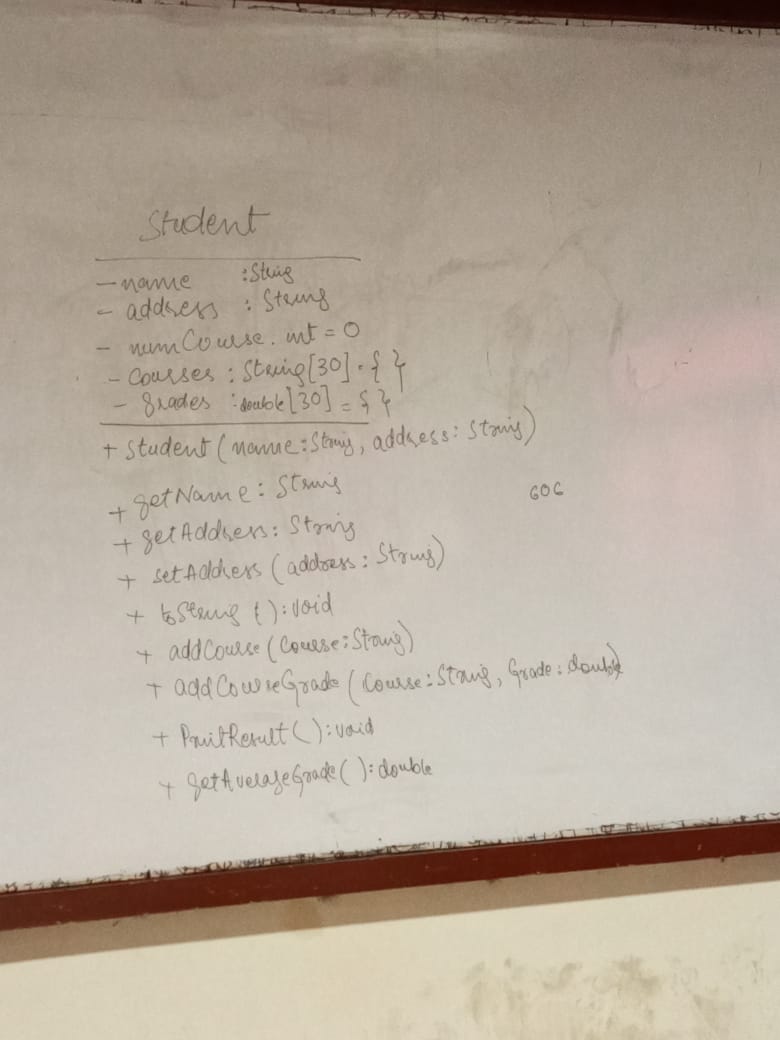 Student
- name : String
- address : String
- numCourse : int = 0
- Courses : String[30] = { }
- grades : double[30] = { }
+ Student (name : String, address : String)
+ getName : String
+ getAddress : String
+ setAddress (address : String)
+ toString () : void
+ addCourse (Course : String)
+ addCourseGrade (Course : String, Grade : double)
+ PrintResult () : void
+ getAverageGrade () : double